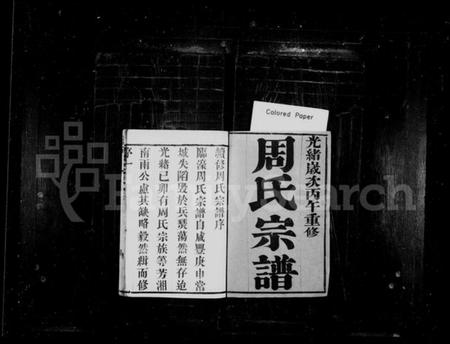 Colored Paper
光緒歲次丙午重修
周氏宗譜
續修周氏宗譜序
臨濠周氏宗譜自咸豐庚申常
城失陷毀於兵燹蕩然無存迨
光緒己卯有周氏宗族等芳湘
南雨公慮其缺略毅然輯而修
序一
FamilySearch